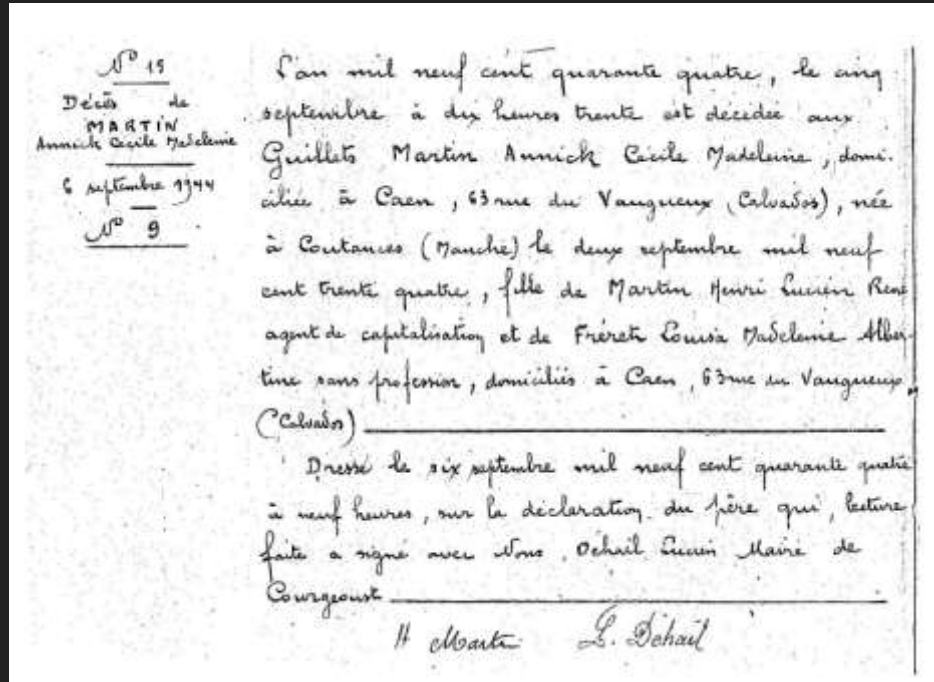 N° 19
Décès de
MARTIN
Annick Cécile Madeleine
6 septembre 1944
N° 9
L'an mil neuf cent quarante quatre, le cinq
septembre à dix heures trente est décédée aux
Guillets Martin Annick Cécile Madeleine, domi-
ciliée à Caen, 63 rue du Vaugueux (Calvados), née
à Coutances (Manche) le deux septembre mil neuf
cent trente quatre, fille de Martin Henri Lucien René
agent de capitalisation et de Fréret Louisa Madeleine Alber-
tine sans profession, domiciliés à Caen, 63 rue du Vaugueux
(Calvados)
Dressé le six septembre mil neuf cent quarante quatre
à neuf heures, sur la déclaration du père qui, lecture
faite a signé avec Nous, Déhail Lucien Maire de
Courgeoust
H Martin L. Déhail